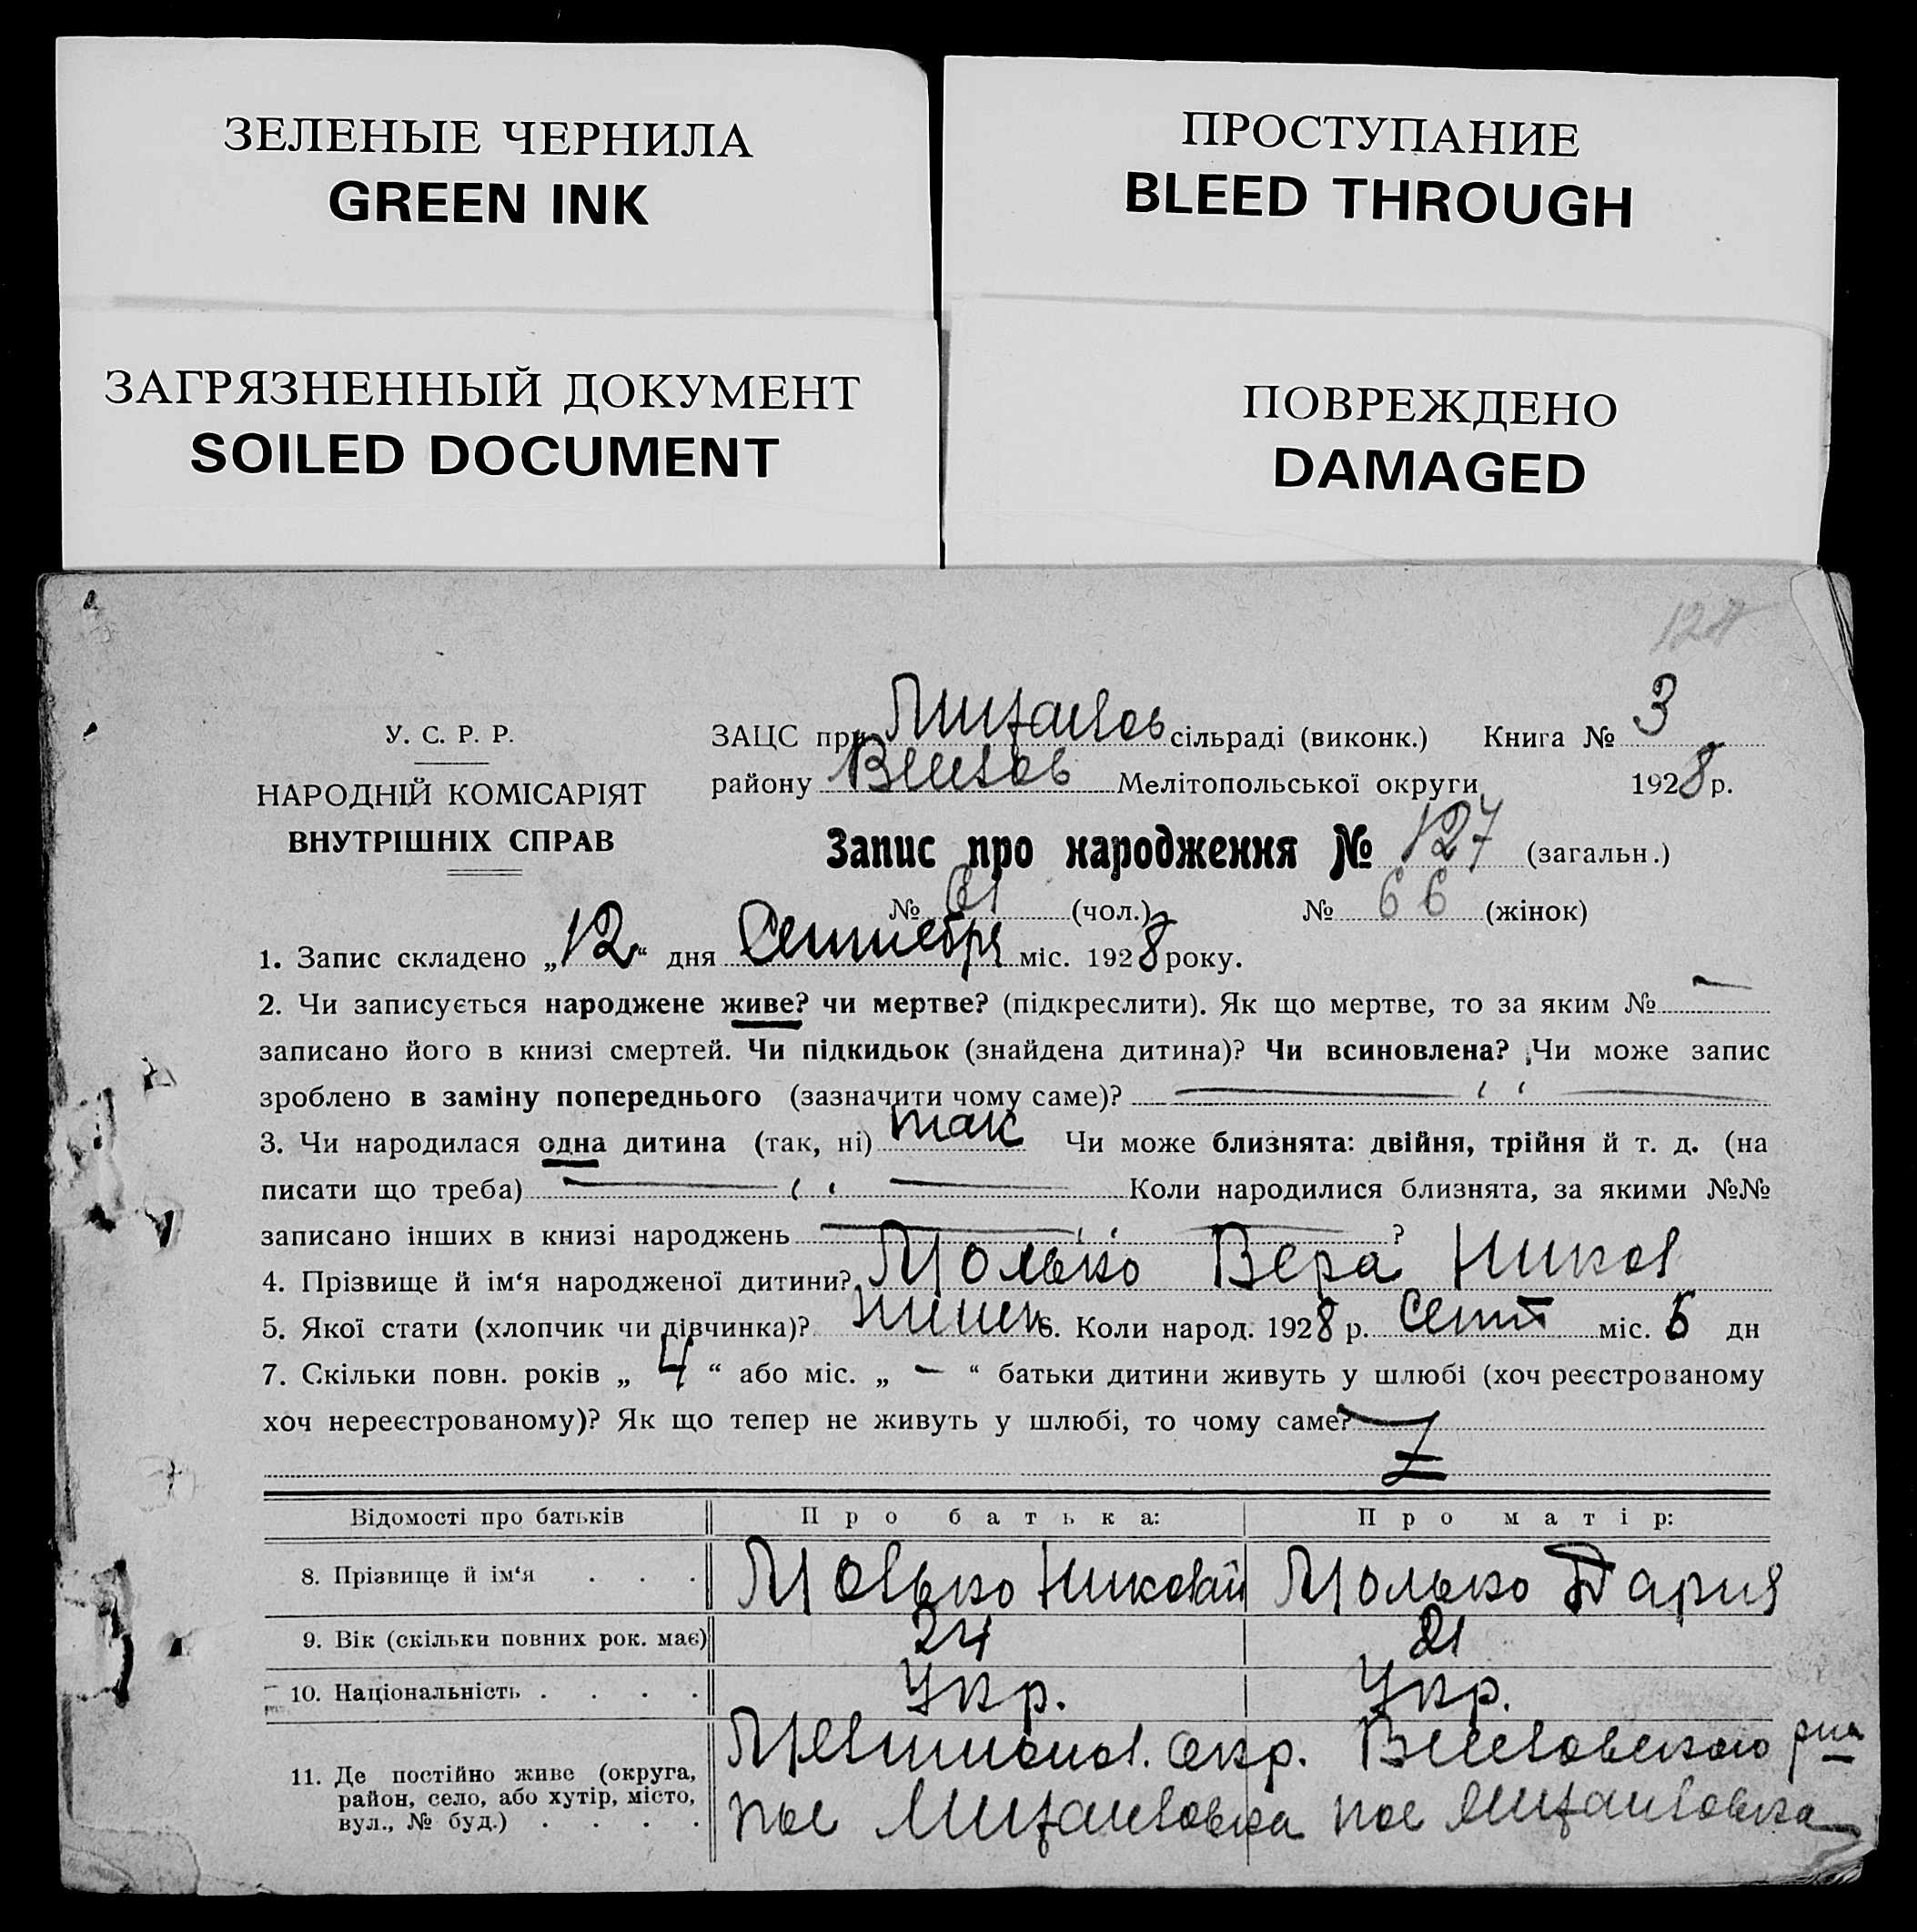 ЗЕЛЕНЫЕ ЧЕРНИЛА
GREEN INK
ПРОСТУПАНИЕ
BLEED THROUGH
ЗАГРЯЗНЕННЫЙ ДОКУМЕНТ
SOILED DOCUMENT
ПОВРЕЖДЕНО
DAMAGED
У. С. Р. Р.
НАРОДНІЙ КОМІСАРІЯТ
ВНУТРІШНІХ СПРАВ
ЗАЦС при сільраді (виконк.) Книга № 3
району Весел ов Мелітопольської округи 1928 р.
Запис про народження № 127 (загальн.)
№ 61 (чол.) № 66 (жінок)
1. Запис складено „12“ дня Сентября міс. 1928 року.
2. Чи записується народжене живе? чи мертве? (підкреслити). Як що мертве, то за яким № —
записано його в книзі смертей. Чи підкидьок (знайдена дитина)? Чи всиновлена? Чи може запис
зроблено в заміну попереднього (зазначити чому саме)? — „ —
3. Чи народилася одна дитина (так, ні) так Чи може близнята: двійня, трійня й т. д. (на
писати що треба) — „ — Коли народилися близнята, за якими №№
записано інших в книзі народжень — „ — ?
4. Прізвище й ім‘я народженої дитини? Молько Вера Никол
5. Якої стати (хлопчик чи дівчинка)? 6. Коли народ. 1928 р. Сент міс. 5 дн
7. Скільки повн. років „ 4 “ або міс. „ — “ батьки дитини живуть у шлюбі (хоч реєстрованому
хоч нереєстрованому)? Як що тепер не живуть у шлюбі, то чому саме?
Відомості про батьків Про батька: Про матір:
8. Прізвище й ім‘я . . . Молько Николай Молько Дария
9. Вік (скільки повних рок. має) 24 21
10. Національність . . . . Укр. Укр.
11. Де постійно живе (округа,
район, село, або хутір, місто,
вул., № буд.) . . . .
Мелитопол. окр. Веселовского р-на
пос пос